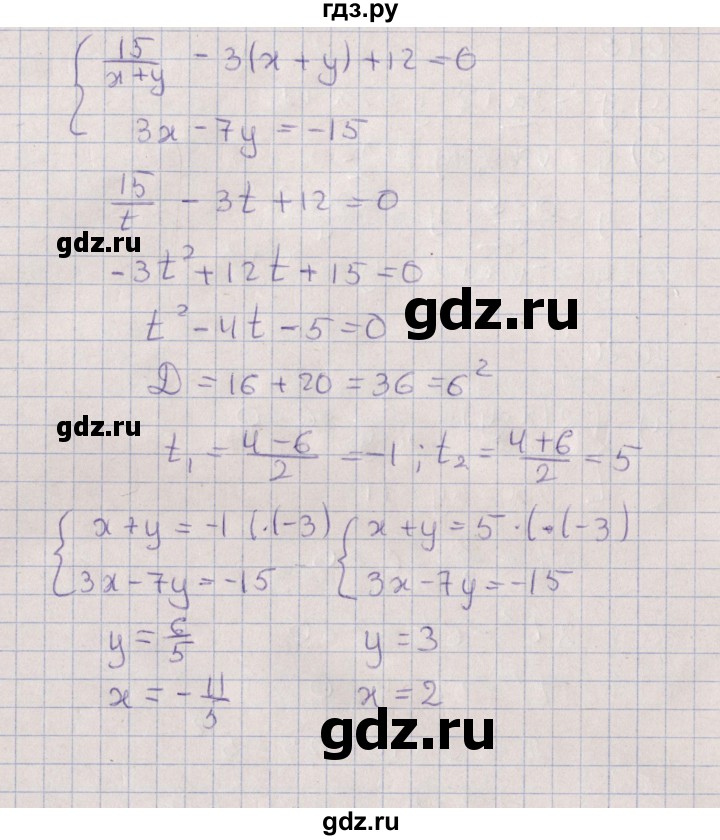 гдз.ру
15/(x+y) - 3(x+y)+12 = 6
3x - 7y = -15
15/t - 3t + 12 = 0
gdz.ru
-3t² + 12t + 15 = 0
gdz.ru
t² - 4t - 5 = 0
D = 16 + 20 = 36 = 6²
gdz.ru
t₁ = (4-6)/2 = -1 ; t₂ = (4+6)/2 = 5
{ x+y = -1 (·(-3) { x+y = 5 ·(·(-3)
3x - 7y = -15 3x - 7y = -15
y = 6/5 y = 3
x = -11/5 x = 2
gdz.ru
gdz.ru